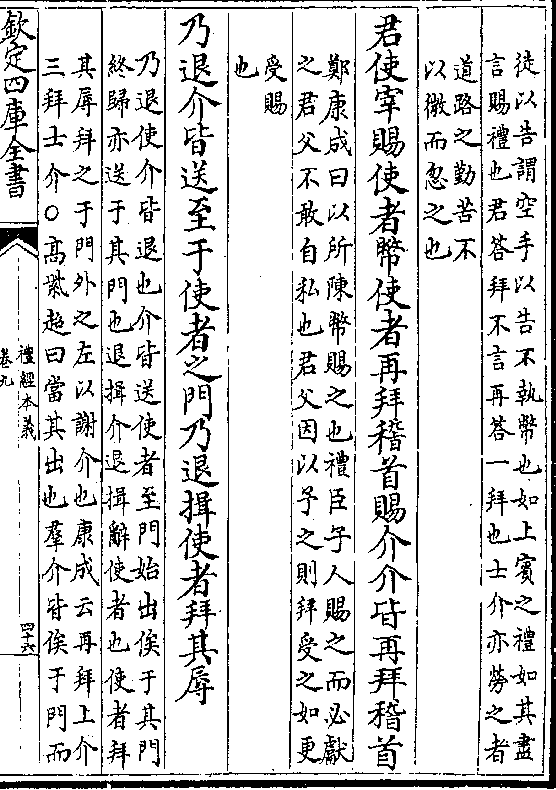 徒以告謂空手以告不執幣也如上賓之禮如其盡
言賜禮也君答拜不言再答一拜也士介亦勞之者
道路之勤苦不
以微而忽之也
君使宰賜使者幣使者再拜稽首賜介介皆再拜稽首
鄭康成曰以所陳幣賜之也禮臣子人賜之而必獻
之君父不敢自私也君父因以予之則拜受之如更
受賜
也
乃退介皆送至于使者之門乃退揖使者拜其辱
乃退使介皆退也介皆送使者至門始出俟于其門
終歸亦送于其門也退揖介退揖辭使者也使者拜
其辱拜之于門外之左以謝介也康成云再拜上介
三拜士介○高紫超曰當其出也羣介皆俟于門而
欽定四庫全書
禮經本義
卷九
四十六